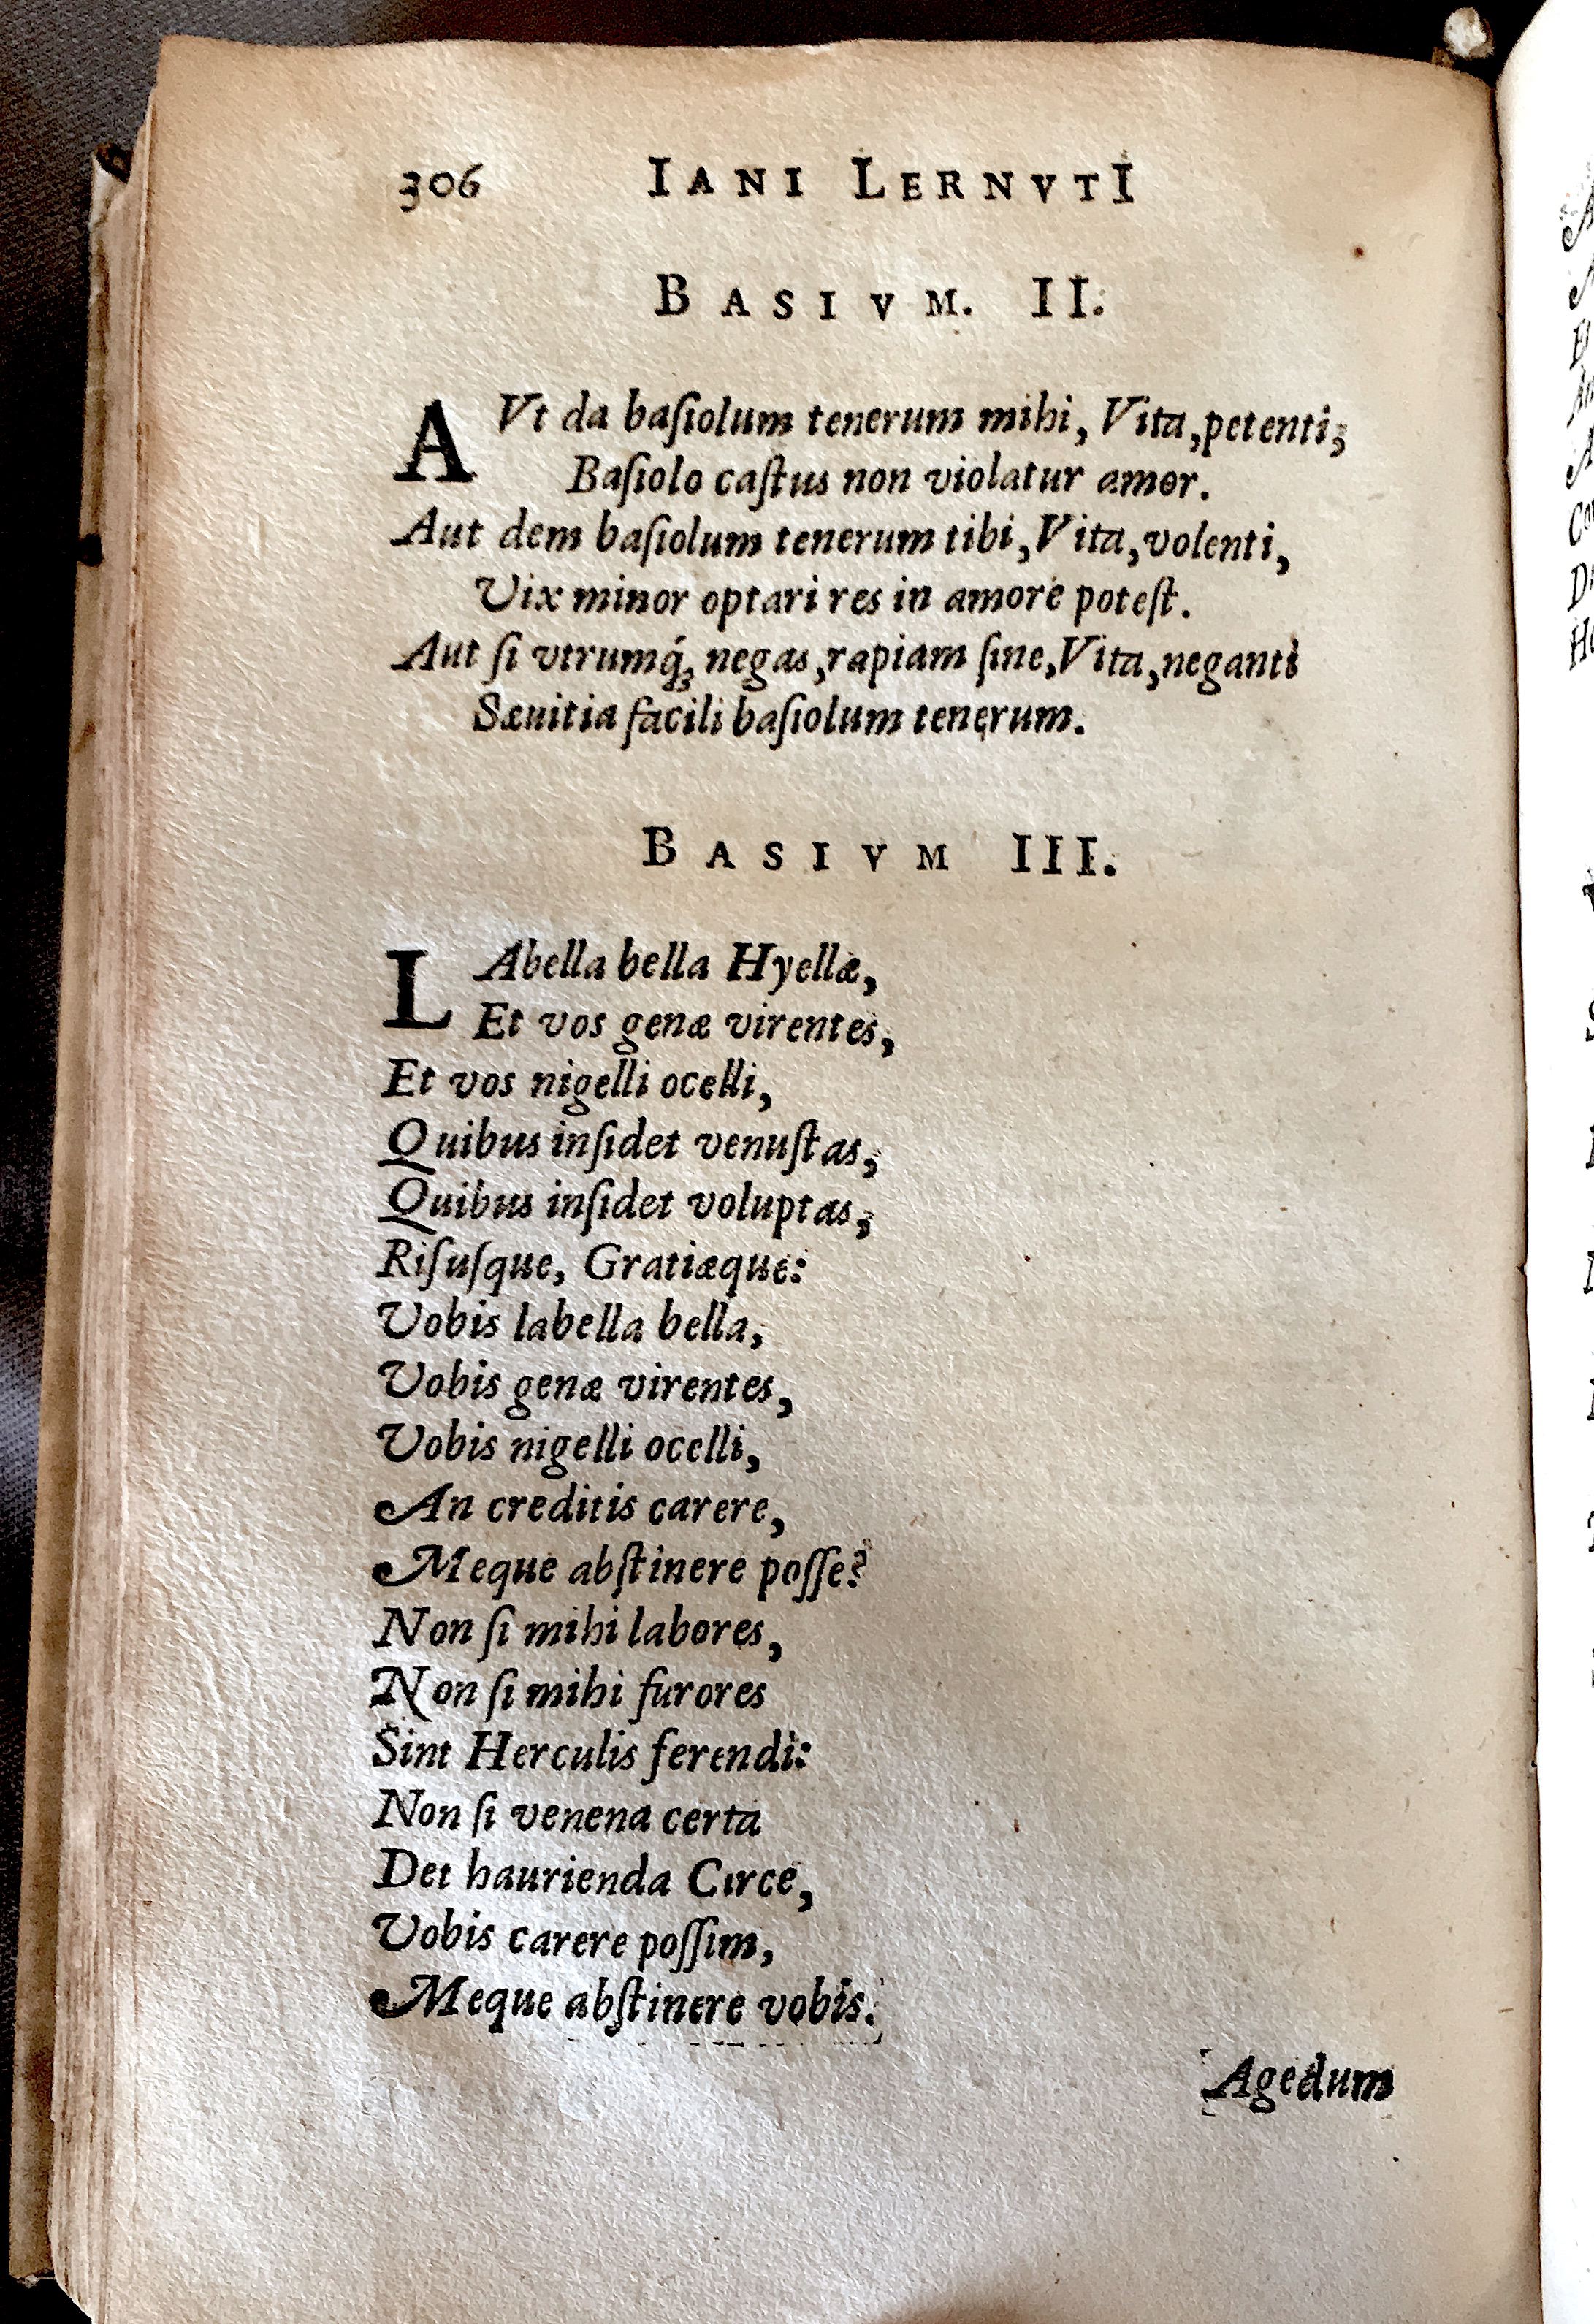 306 IANI LERNVTI
BASIVM. II.
AVt da baſiolum tenerum mihi, Vita, petenti,
Baſiolo caſtus non violatur amor.
Aut dem baſiolum tenerum tibi, Vita, volenti,
Vix minor optari res in amore poteſt.
Aut ſi vtrumq́ꝫ negas, rapiam ſine, Vita, neganti
Sæuitia facili baſiolum tenerum.
BASIVM III.
LAbella bella Hyellæ,
Et vos genæ virentes,
Et vos nigelli ocelli,
Quibus inſidet venuſtas,
Quibus inſidet voluptas,
Riſuſque, Gratiæque:
Vobis labella bella,
Vobis genæ virentes,
Vobis nigelli ocelli,
An creditis carere,
Meque abſtinere poſſe?
Non ſi mihi labores,
Non ſi mihi furores
Sint Herculis ferendi:
Non ſi venena certa
Det haurienda Circe,
Vobis carere poſſim,
Meque abſtinere vobis.
Agedum